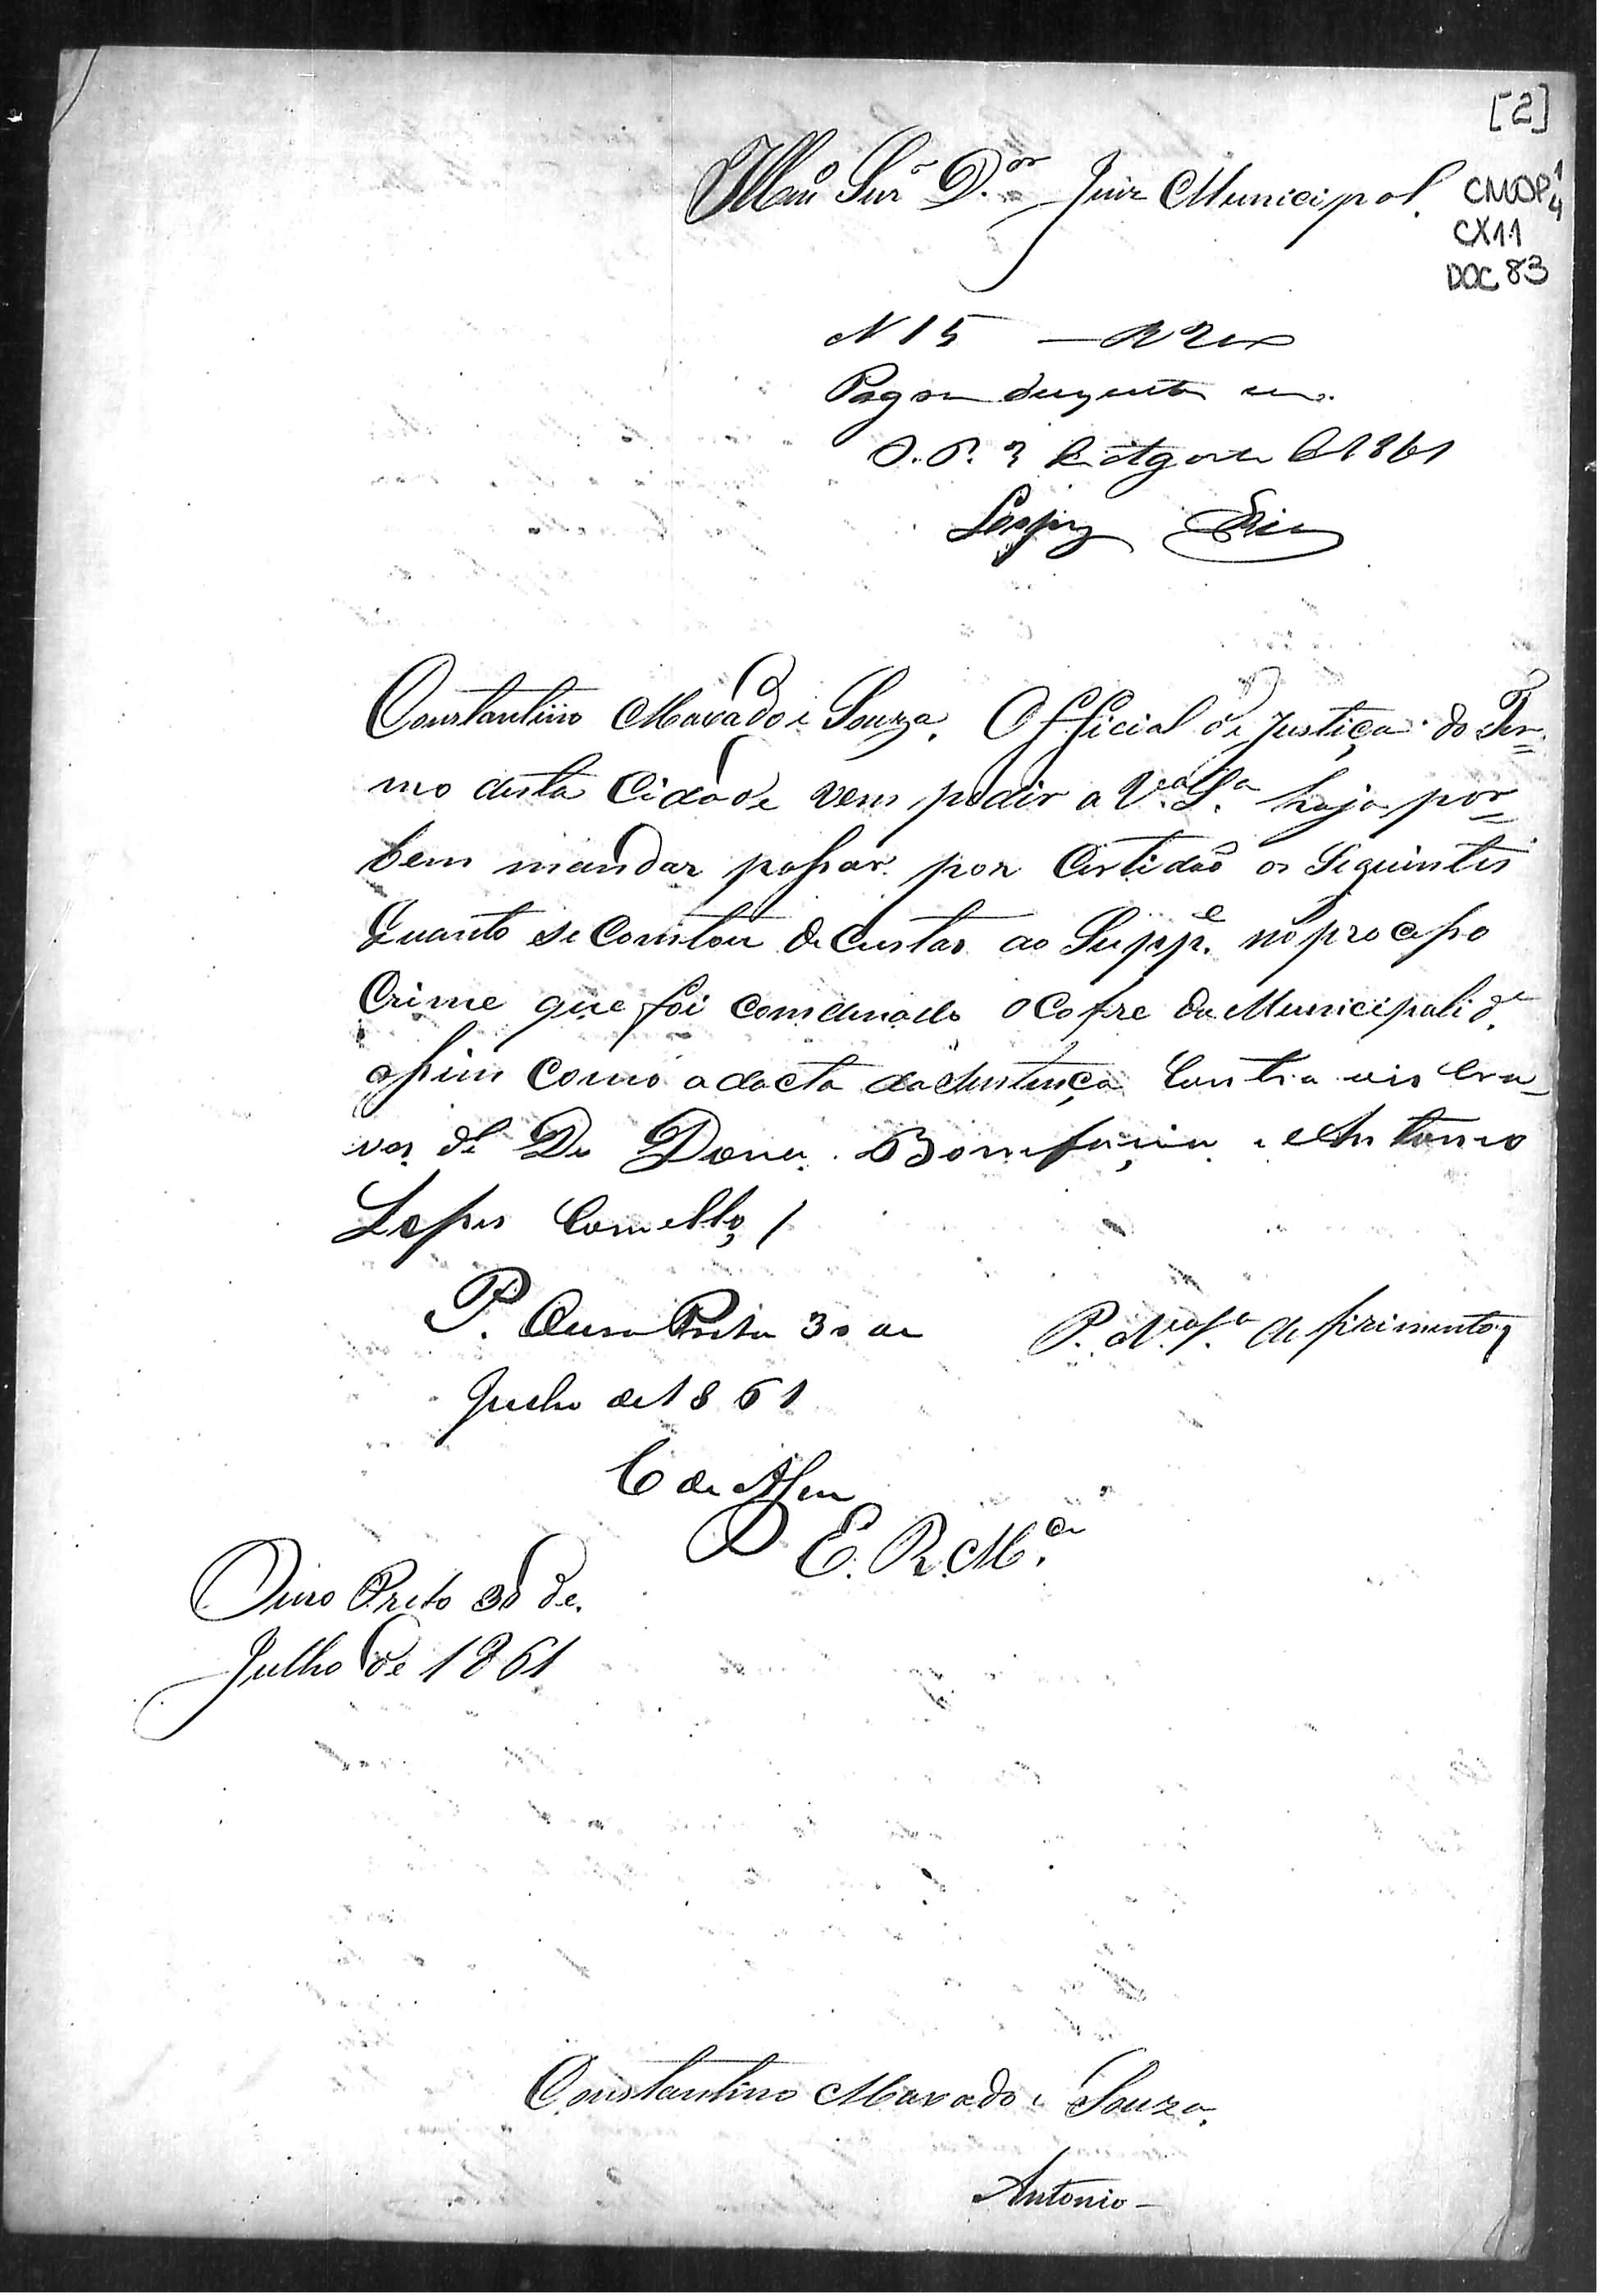 [2]
Illmo Snr Dor Juiz Municipal.
CMOP 1/4
CX11
DOC 83
N 15 — R 200
Pagou duzentos reis.
O. P. 3 de Agosto de 1861
Constantino Maxado e Souza, Official de Justiça do Ter=
mo desta Cidade vem pedir a V.a S.a haja por=
bem mandar passar por Certidaõ os Seguintes
Quanto se Contou de Custas ao Supp.e no processo
Crime que foi Comdenado o Cofre da Municipalid.e
assim Como a dacta da Sentença Contra os Cra-
vos de Dona Bonifacia e Antonio
Lopes
P. Ouro Preto 30 de
Julho de 1861
P. a V.a S.a defirimento
C de
E. R. M.ce
Ouro Preto 30 de
Julho de 1861
Constantino Maxado e Souza.
Antonio —